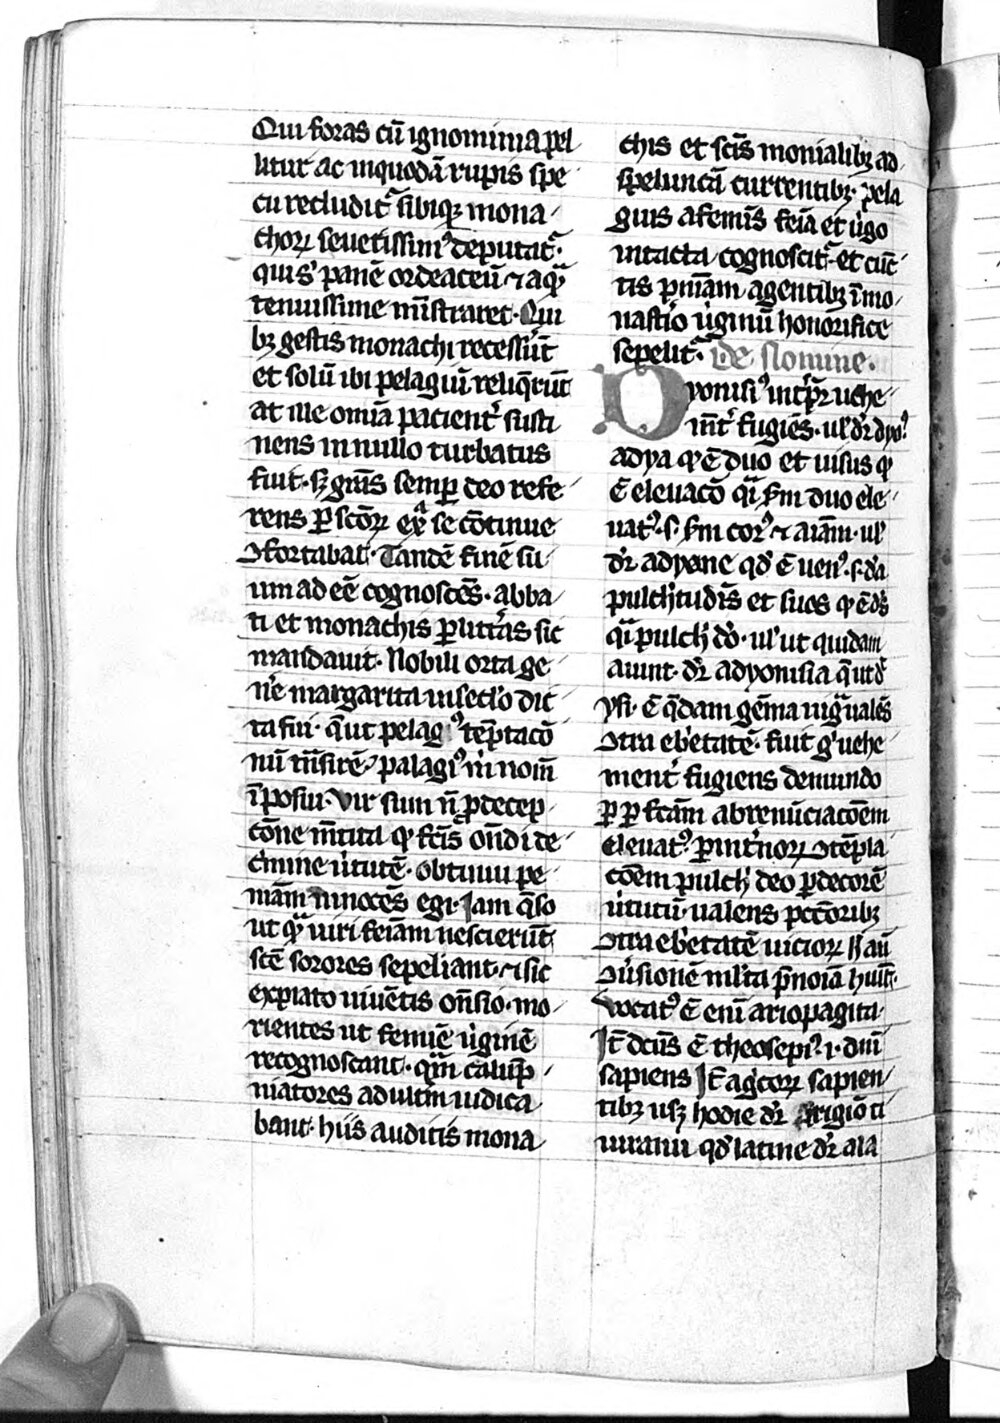 Qui foras cū ignominia pel
litur ac in quodā rupis spe
cu recludit᷑ sibiqꝫ mona
choꝝ seuerissim᷒ deputat᷑
qui s᷒ panē ordeaceū ⁊ aquā
tenuissime mīstraret. Qui
bꝫ gestis monachi recesserūt
et solū ibi pelagiū reliqrūt
at ille omīa pacient᷑ susti
nens in nullo turbatus
fuit. sꝫ grās semꝑ deo refe
rens ꝑ scōꝝ exa se cōtinue
ꝯfortabat. Tandē finē su
um adeē cognoscēs. abba
ti et monachis ꝑ litteras sic
mandauit. Nobili orta ge
nere margarita in seclo dic
ta fui. qut pelag᷒ tēptacō
nū trāsirē. palagi᷒ m nomē
īposui. Vir sum nō ꝓ decep
cōne mētita qꝫ fcīs ondi de
crimine uirtutē. obtinui pe
nitenciā innocēs egi. Iam qso
ut quā uiri feīam nescierūt
scē sorores sepeliant. ⁊ sic
expiato uiuētis onsio. mo
rientes ut femīe uirginē
recognoscant. quā calūp
niatores adulterā iudica
bant. hiis auditis mona
chis et scīs monialibꝫ ad
speluncā currentibꝫ. pela
gius a femīs feīa et uirgo
intacta cognoscit᷑. et cunc
tis penitenciā agentibꝫ ī mo
nasterio uirginū honorifice
sepelit᷑. De nomine.
Dyonisi᷒ interpretatur uehe
ment᷑ fugiēs. ul dr dyo᷒
a dya qꝫ ē duo et uisus qꝫ
ē eleuacō qi scdm duo ele
uat᷒. s. scdm cor᷒ ⁊ aīam. ul
dr a dyone qd ē uen᷒. s. dea
pulchritudīs et suos qꝫ ē ds
qi pulcher do. ul ut quidam
aiunt. dr a dyonisia que ut dr
ysi. ē qdam gēma nigra ualēs
ꝯtra ebrietatē. fuit g uehe
ment᷑ fugiens de mundo
ꝑ ꝑfctam abrenūciacōem
eleuat᷒. ꝑ internoꝝ ꝯtēpla
cōem pulcher deo ꝑ decorē
uirtutū. ualens pccoribꝫ
ꝯtra ebrietatē uicioꝝ
uocat᷒ ē enī ariopagita
It dcus ē theosepi᷒. i. diuī
sapiens It a grecoꝝ sapien
tibꝫ usqꝫ hodie dr
qd latine dr ala